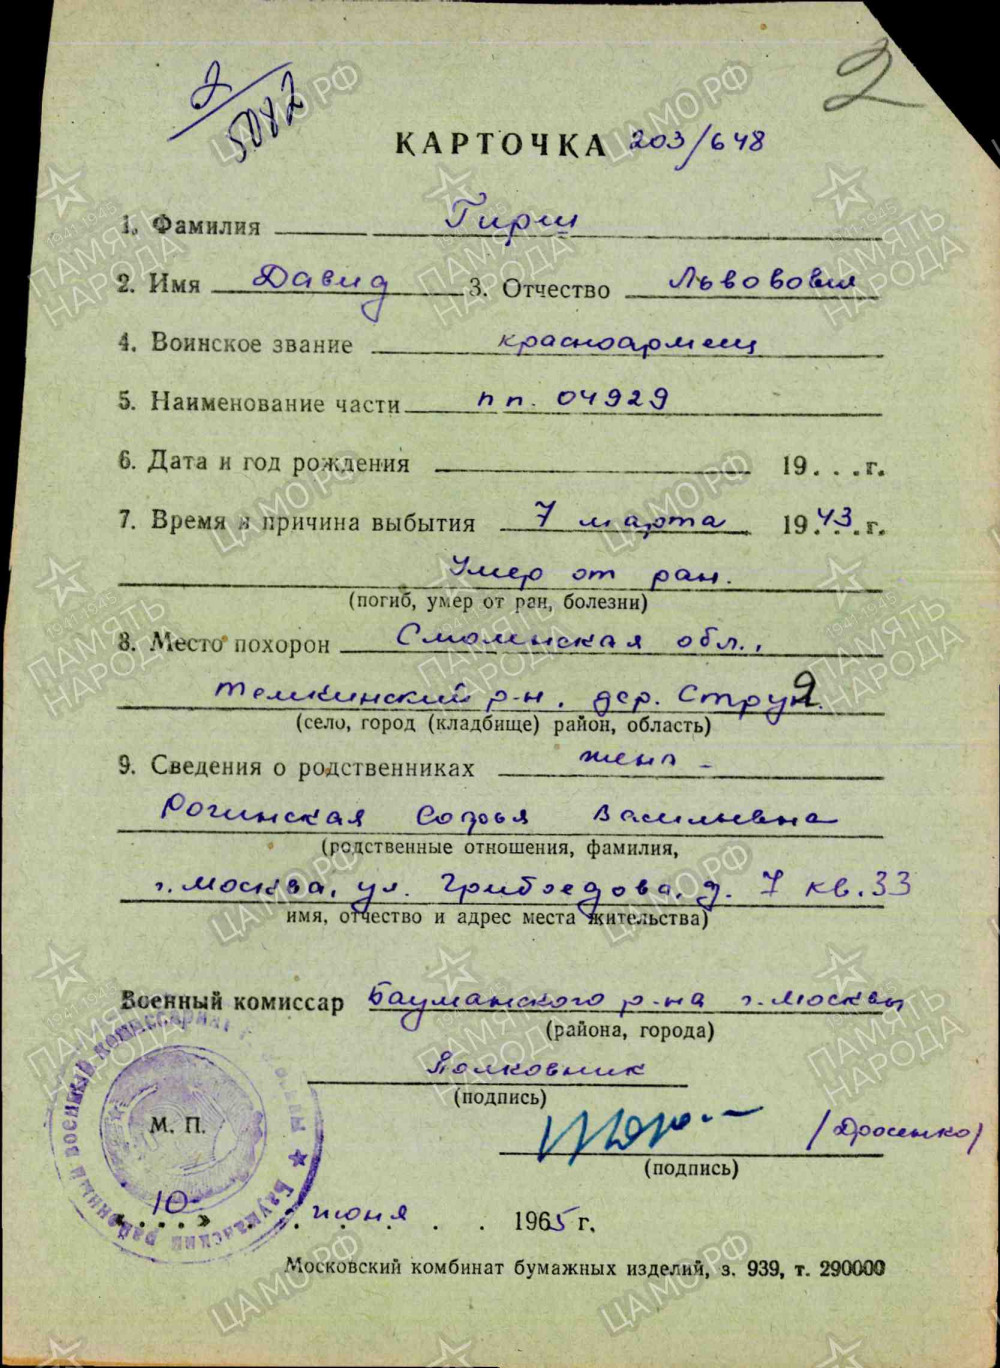 2
2/5082
КАРТОЧКА 203/648
1. Фамилия Гирш
2. Имя Давид 3. Отчество Львович
4. Воинское звание красноармеец
5. Наименование части п п. 04929
6. Дата и год рождения 19...г.
7. Время и причина выбытия 7 марта 1943 г.
Умер от ран.
(погиб, умер от ран, болезни)
8. Место похорон Смоленская обл.,
Темкинский р-н, дер. Струя.
(село, город (кладбище) район, область)
9. Сведения о родственниках жена -
Рогинская Софья Васильевна
(родственные отношения, фамилия,
г. Москва, ул. Грибоедова, д. 7 кв. 33
имя, отчество и адрес места жительства)
Военный комиссар Бауманского р-на г. Москвы
(района, города)
Полковник
(подпись)
/Дросенко/
(подпись)
М. П.
«10» июня 1965 г.
Московский комбинат бумажных изделий, з. 939, т. 290000
ЦАМО.РФ
ПАМЯТЬ НАРОДА
1941-1945